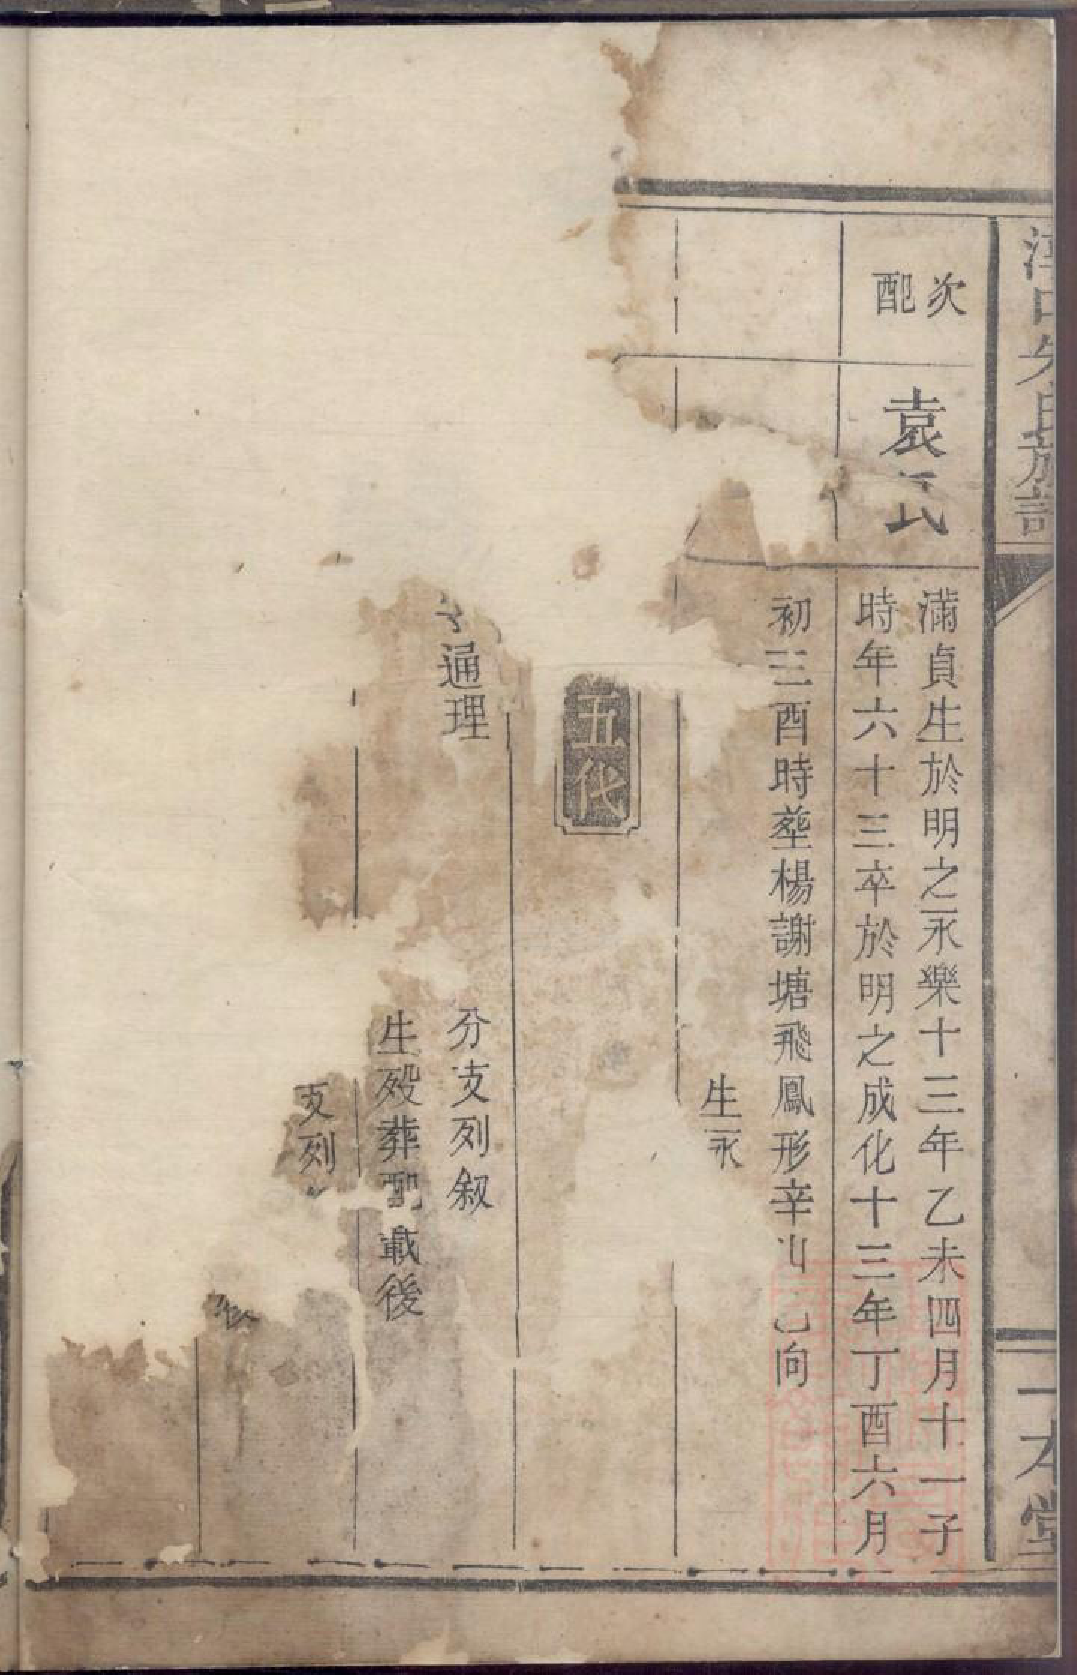 朱氏族譜
一本堂
次配
袁氏
滿貞生於明之永樂十三年乙未四月十一子
時年六十三卒於明之成化十三年丁酉六月
初三酉時塟楊謝塘飛鳳形辛山乙向
生永
五代
通理
分支列叙
生殁葬配載後
支列